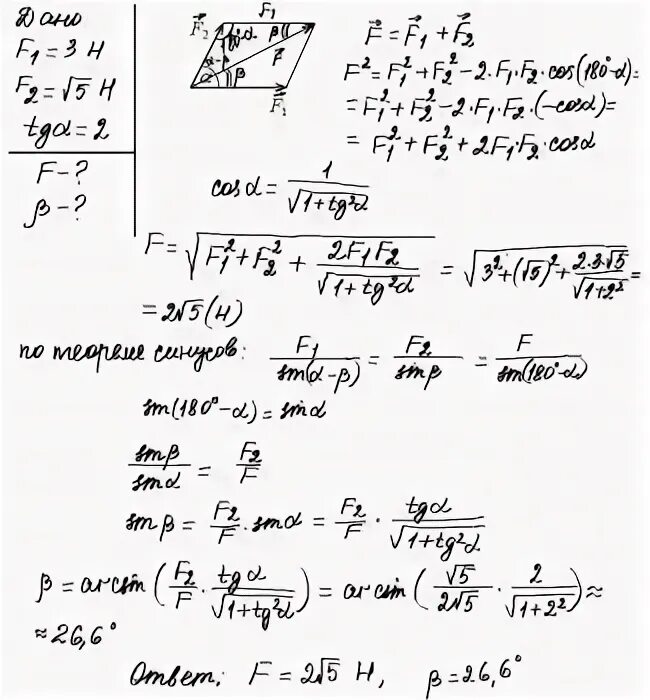 Дано
F₁ = 3 Н
F₂ = √5 Н
tgα = 2
F - ?
β - ?
F₂ F₁
180°-α β
α-β F
α β
F₁
F⃗ = F⃗₁ + F⃗₂
F² = F₁² + F₂² - 2·F₁·F₂·cos(180°-α) =
= F₁² + F₂² - 2·F₁·F₂·(-cosα) =
= F₁² + F₂² + 2F₁·F₂·cosα
cosα = 1/√(1+tg²α)
F = √(F₁² + F₂² + 2F₁F₂/√(1+tg²α)) = √(3² + (√5)² + 2·3·√5/√(1+2²)) =
= 2√5 (Н)
по теореме синусов: F₁/sin(α-β) = F₂/sinβ = F/sin(180°-α)
sin(180°-α) = sinα
sinβ/sinα = F₂/F
sinβ = F₂/F · sinα = F₂/F · tgα/√(1+tg²α)
β = arcsin(F₂/F · tgα/√(1+tg²α)) = arcsin(√5/2√5 · 2/√(1+2²)) ≈
≈ 26,6°
Ответ: F = 2√5 Н, β = 26,6°